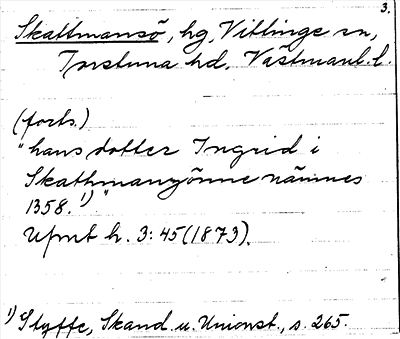 3.
Skattmansö, hg, Vittinge sn,
Torstuna hd, Västmanl. l.
(forts.)
"hans dotter Ingrid i
Skathmanzönne nämnes
1358. 1)"
Upmt h. 3:45 (1873).
1) Styffe, Skand. u. Unionst., s. 265.